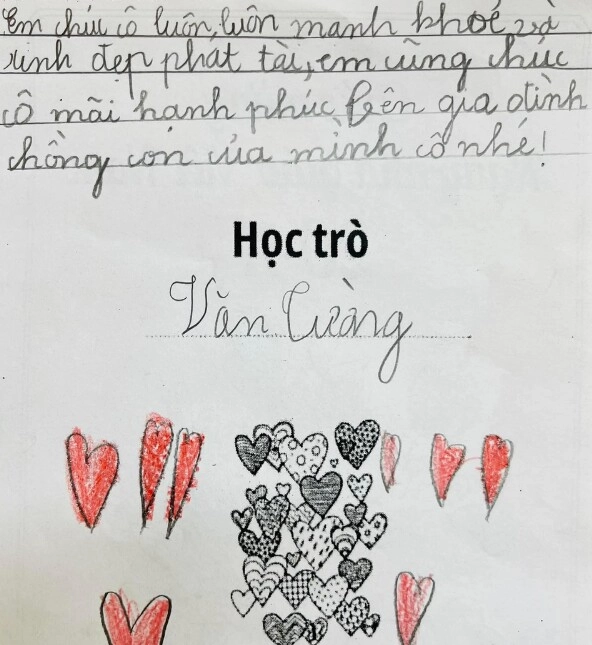 Em chúc cô luôn, luôn mạnh khoẻ, và
xinh đẹp phát tài, em cũng chúc
cô mãi hạnh phúc bên gia đình
chồng con của mình cô nhé!
Học trò
Văn Cường